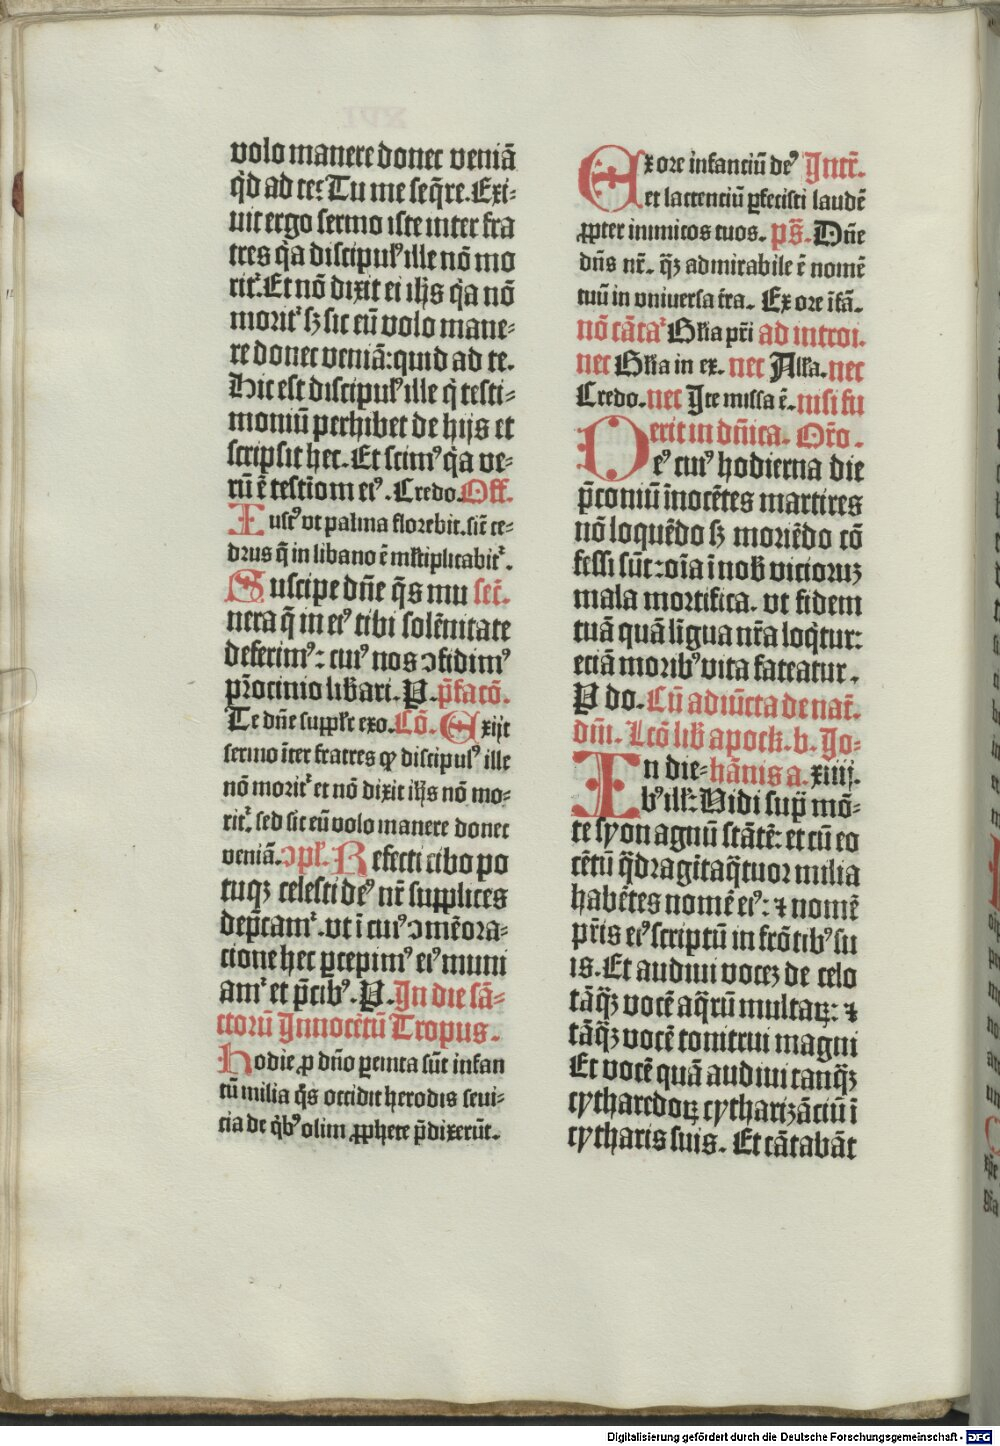 volo manere donec veniā
q̄d ad te? Tu me seq̄re. Exi-
uit ergo sermo iste inter fra
tres q̇a discipulꝰ ille nō mo
rit᷑. Et nō dixit ei ih̄s q̇a nō
morit᷑ sꝫ sic eū volo mane-
re donec veniā: quid ad te.
Hic est discipulꝰ ille q̇ testi-
moniū perhibet de hijs et
scripsit hec. Et scimꝰ q̇a ve-
rū ē testīom eiꝰ. Credo. Off̄.
Iustꝰ vt palma florebit. sic̄ ce-
drus q̄ in libano ē ml̄tiplicabit᷑.
Suscipe dn̄e q̄s mu sec̄.
nera q̄ in eiꝰ tibi solēnitate
deferimꝰ: cuiꝰ nos ɔfidimꝰ
pr̄ocinio lib̄ari. P. p̄facō.
Te dn̄e supplr̄ exo. Cō. Exijt
sermo īter fratres qꝙ discipulꝰ ille
nō morit᷑ et nō dixit ih̄s nō mo-
rit᷑. sed sic eū volo manere donec
veniā. ɔpl̄. Refecti cibo po
tuqꝫ celesti deꝰ nr̄ supplices
dep̄camr᷑. vt ī cuiꝰ ɔmēora-
cione hec ꝑcepimꝰ eiꝰ muni
amr᷑ et p̄cibꝰ. P. In die sā-
ctorū Innocētū Tropus.
Hodie ꝓ dn̄o ꝑempta sūt infan
tū milia q̄s occidit herodis seui-
cia de q̇bꝰ olim ꝓphete p̄dixerūt.
XVI
Ex ore infanciū deꝰ Intr̄.
et lactenciū ꝑfecisti laudē
ꝓpter inimicos tuos. ps̄. Dn̄e
dn̄s nr̄. q̄ꝫ admirabile ē nomē
tuū in vniuersa t̄ra. Ex ore īfā.
nō cātat᷑ Gl̄ia pr̄i ad introi.
nec Gl̄ia in ex. nec All̄a. nec
Credo. nec Ite missa ē. nisi fu
erit in dn̄ica. Or̄o.
Deꝰ cuiꝰ hodierna die
p̄coniū īnocētes martires
nō loquēdo sꝫ moriēdo cō
fessi sūt: oīa ī nob̄ vicioruꝫ
mala mortifica. vt fidem
tuā quā līgua nr̄a loq̇tur:
eciā moribꝰ vita fateatur.
P do. Cū adiūcta de nat̄.
dn̄i. Lcō lib̄ apock̄. b. Jo-
In die- hānis a. xiiij.
bꝰ ill̄: Vidi supͣ mō-
te syon agnū stātē: et cū eo
cētū q̄dragīta q̄tuor milia
habētes nomē eiꝰ: ⁊ nomē
pr̄is eiꝰ scriptū in frōtibꝰ su
is. Et audiui voceꝫ de celo
tāq̄ꝫ vocē aq̄rū multaꝝ: ⁊
tāq̄ꝫ vocē tonitrui magni
Et vocē quā audiui tanq̄ꝫ
cytharedoꝝ cytharizāciū ī
cytharis suis. Et cātabāt
Digitalisierung gefördert durch die Deutsche Forschungsgemeinschaft - DFG